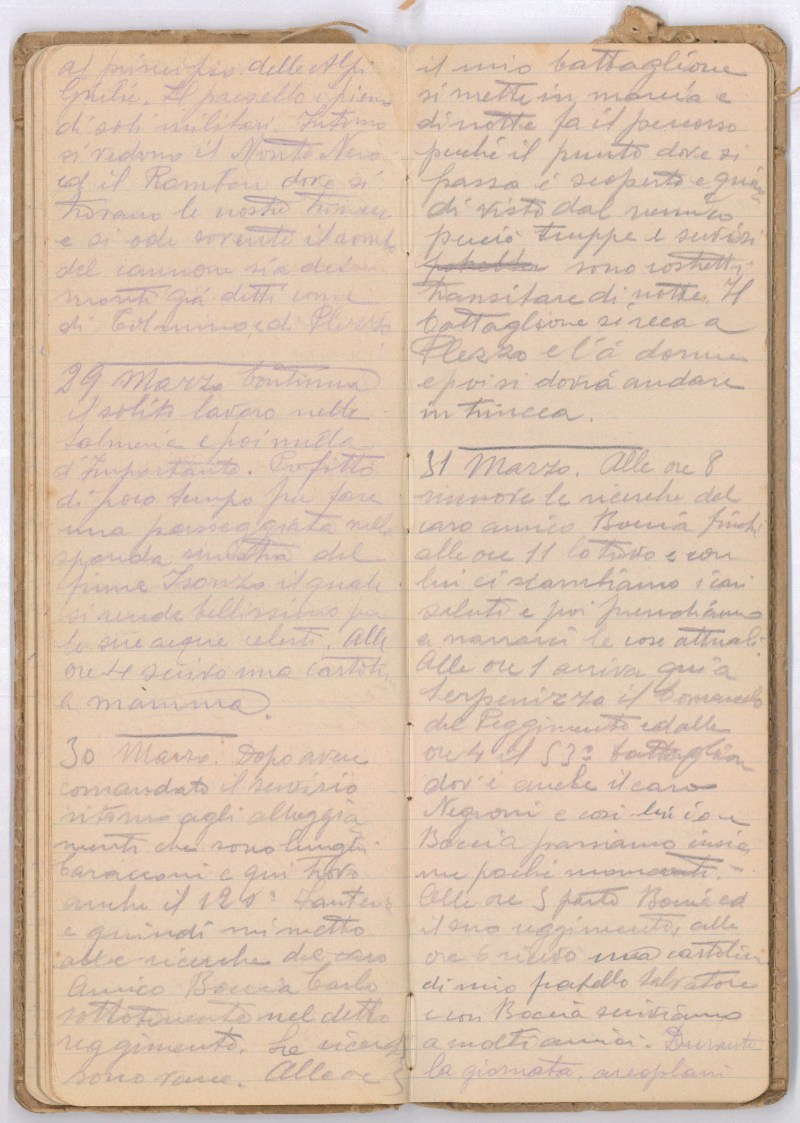 al principio delle Alpi
Giulie. Il paesello è pieno
di soli militari. Intorno
si vedono il Monte Nero
ed il Rombon dove si
trovano le nostre trincee
e si ode sovente il rombo
del cannone sia dei
monti già detti come
di Tolmino, e di Plezzo.
29 Marzo Continua
il solito lavoro nelle
salmerie e poi nulla
d'Importante. Profitto
di poco tempo per fare
una passeggiata nella
sponda sinistra del
fiume Isonzo il quale
si rende bellissimo per
le sue acque celesti. Alle
ore 4 scrivo una cartolina
a mamma.
30 Marzo. Dopo avere
comandato il servizio
ritorno agli alloggia
menti che sono lunghi
baracconi e qui trovo
anche il 120° Fanteria
e quindi mi metto
alle ricerche del caro
Amico Boccia Carlo
sottotenente nel detto
reggimento. Le ricerche
sono vane. Alle ore 5
il mio battaglione
si mette in marcia e
di notte fa il percorso
perché il punto dove si
passa é scoperto e quin
di visto dal nemico
perciò truppe e servizi
sono costretti
transitare di notte. Il
battaglione si reca a
Plezzo e l'á dorme
e poi si dovrá andare
in trincea.
31 Marzo. Alle ore 8
rinnovo le ricerche del
caro amico Boccia finché
alle ore 11 lo trovo e con
lui ci scambiamo i cari
saluti e poi prendiamo
a narrarci le cose attuali.
Alle ore 1 arriva quí a
Serpenizza il Comando
del Reggimento ed alle
ore 4 il 53° battaglione
dov'é anche il caro
Negroni e cosí lui io e
Boccia passiamo insie
me pochi momenti.-
Alle ore 5 parte Boccia ed
il suo reggimento, alle
ore 6 ricevo una cartolina
di mio fratello Salvatore
e con Boccia scriviamo
a molti amici. Durante
la giornata. areoplani